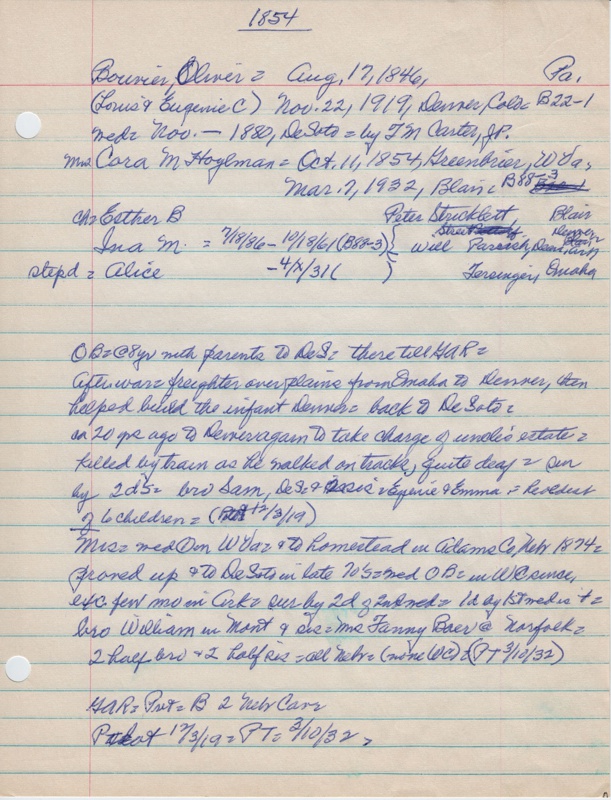 1854
Bouvier, Oliver = Aug. 17, 1846, Pa.
(Louis & Eugenie C) Nov. 22, 1919, Denver, Colo = B22-1
med = Nov. — 1880, DeSoto = by T M Carter, JP.
Mrs. Cora M Hoylman = Oct. 11, 1854, Greenbrier, W Va,
Mar. 7, 1932, Blair = B88-3
ch = Esther B Peter Stricklett, Blair
Ina M. = 7/18/86 - 10/18/61 (B88-3) Will Denver
stepd = Alice -4/X/31 ( ) Omaha
OB = @ 8 yr with parents to DeS = there till GAR =
After war = freighter over plains from Omaha to Denver, then
helped build the infant Denver = back to DeSoto =
ca 20 yrs ago to Denver again to take charge of uncle's estate =
killed by train as he walked on tracks, quite deaf = sur
by 2 d's = bro Sam, DeS = & sis = Eugenie & Emma =
of 6 children = (12/3/19)
Mrs = med on W Va = & to homestead in Adams Co, Nebr 1874 =
proved up & to DeSoto in late 70's = med OB = in WC since,
exc few mo in Ark = sur by 2 d of 2nd med = 1 d by 1st med is + =
bro William in Mont & sis = Mrs Fanny Baer @ Norfolk =
2 half bro & 2 half sis = all Nebr = (none WC) = (PT 3/10/32)
GAR = Pvt = B 2 Nebr Cav =
12/3/19 = PT = 3/10/32,